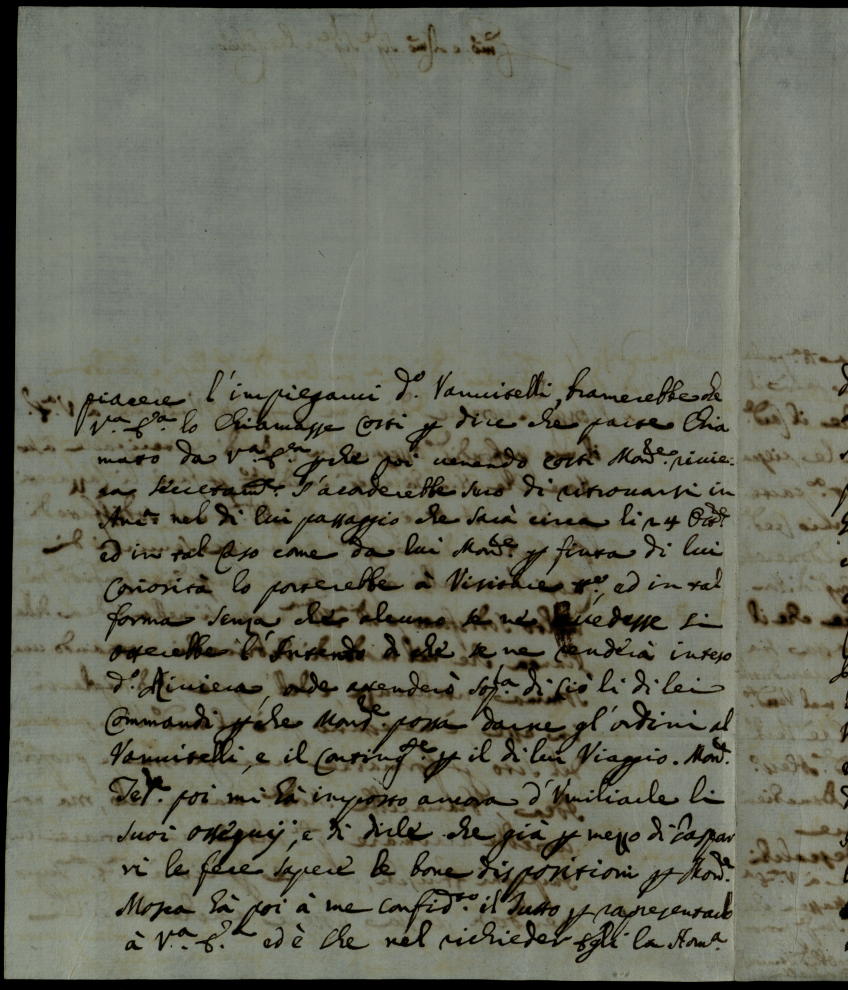 piacere l'impiegarui d.º Vannitelli, bramerebbe che
V.ra E.za lo chiamasse costì p dire che parte chia
mato da V.ra E.za p che poi venendo costì Mons.re rivie-
ra accaderebbe suo di ritrovarsi in
nel di lui passaggio che sarà circa li 24
ed in tal caso come da lui Mons.re p finta di lui
Coriosità lo porterebbe à Visitare ed in tal
forma senza che alcuno se ne si
otterebbe l'Intento di che se ne renderà inteso
d.º Riviera, onde attenderò sop.ª di ciò li di lei
Commandi p che Mons.re possa darne gl'ordini al
Vannitelli, e il p il di lui Viaggio. Mons.r
poi mi hà imposto ancora d'Umiliarle li
suoi ossequij, e di dirle che già p mezzo di Caspar
ri le fece sapere le bone dispositioni p Mons.r
Mosca hà poi à me confid.to il tutto p rapresentarlo
à V.ra E.za ed è che nel richieder egli la